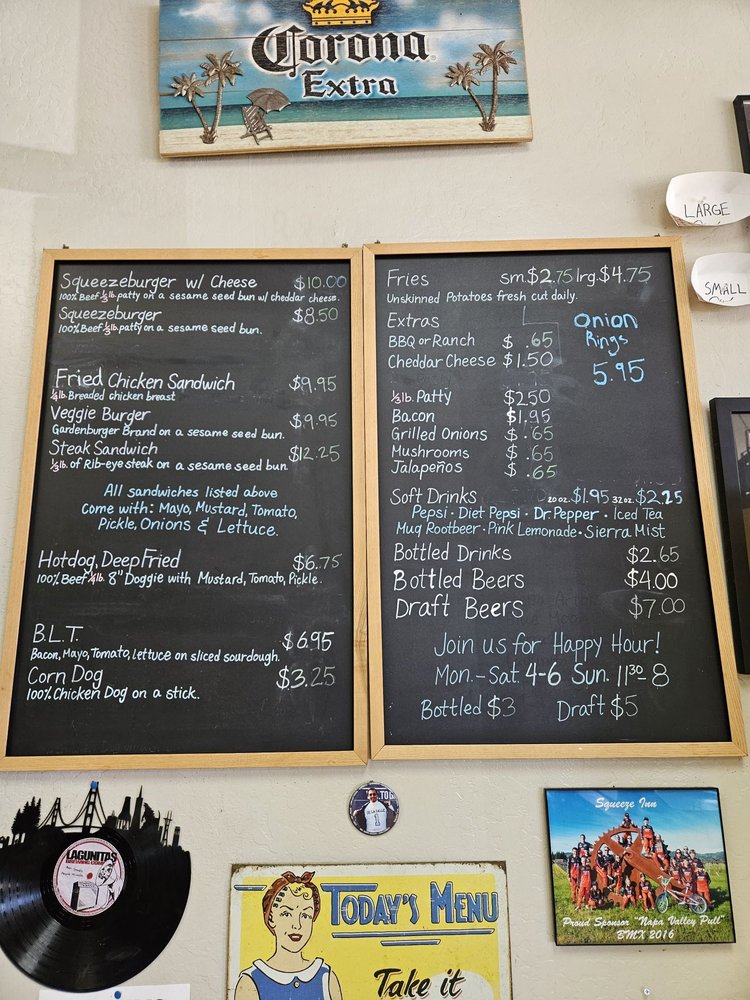 Corona
Extra
LARGE
SMALL
Squeezeburger w/ Cheese $10.00
100% Beef ⅓ lb. patty on a sesame seed bun w/ cheddar cheese.
Squeezeburger $8.50
100% Beef ⅓ lb. patty on a sesame seed bun.
Fried Chicken Sandwich $9.95
¼ lb. Breaded chicken breast
Veggie Burger $9.95
Gardenburger Brand on a sesame seed bun.
Steak Sandwich $12.25
lb. of Rib-eye steak on a sesame seed bun
All sandwiches listed above
come with: Mayo, Mustard, Tomato,
Pickle, Onions & Lettuce.
Hotdog, Deep Fried $6.75
100% Beef ¼ lb. 8" Doggie with Mustard, Tomato, Pickle.
B.L.T. $6.95
Bacon, Mayo, Tomato, lettuce on sliced sourdough.
Corn Dog $3.25
100% Chicken Dog on a stick.
Fries sm. $2.75 lrg. $4.75
Unskinned Potatoes fresh cut daily.
Extras
BBQ or Ranch $.65
Cheddar Cheese $1.50
Onion
Rings
5.95
⅓ lb. Patty $2.50
Bacon $1.95
Grilled Onions $.65
Mushrooms $.65
Jalapeños $.65
Soft Drinks 20 oz. $1.95 32 oz. $2.25
Pepsi · Diet Pepsi · Dr. Pepper · Iced Tea
Mug Rootbeer · Pink Lemonade · Sierra Mist
Bottled Drinks $2.65
Bottled Beers $4.00
Draft Beers $7.00
Join us for Happy Hour!
Mon.-Sat. 4-6 Sun. 11:30-8
Bottled $3 Draft $5
LAGUNITAS
BREWING CO.
Squeeze Inn
Proud Sponsor "Napa Valley Pull"
BMX 2016
TODAY'S MENU
Take it